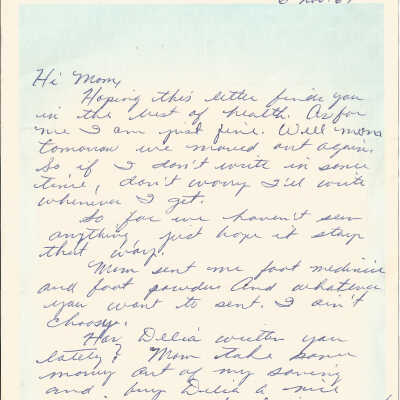 6 Nov. 67
Hi Mom,
Hoping this letter finds you
in the best of health. As for
me I am just fine. Well mom
tomorrow we moved out again.
So if I don't write in some
time, don't worry I'll write
whenever I get.
So far we haven't seen
anything, just hope it stays
that way.
Mom sent me foot medicine
and foot powder. And whatever
you want to sent. I ain't
choosy.
Has Delia written you
lately? Mom take some
money out of my saving
and buy Delia a nice